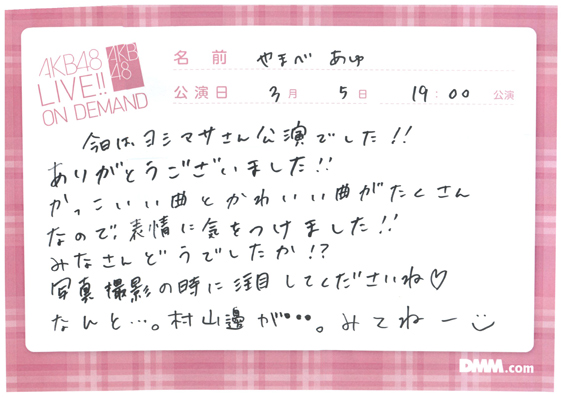 AKB48
LIVE!!
ON DEMAND
AKB
48
名前 やまべ あゆ
公演日 3月 5日 19:00 公演
今日は、ヨシマサさん公演でした!!
ありがとうございました!!
かっこいい曲とかわいい曲がたくさん
なので、表情に気をつけました!!
みなさんどうでしたか!?
写真撮影の時に注目してくださいね♡
なんと…。村山邊が•••。みてねー
DMM.com